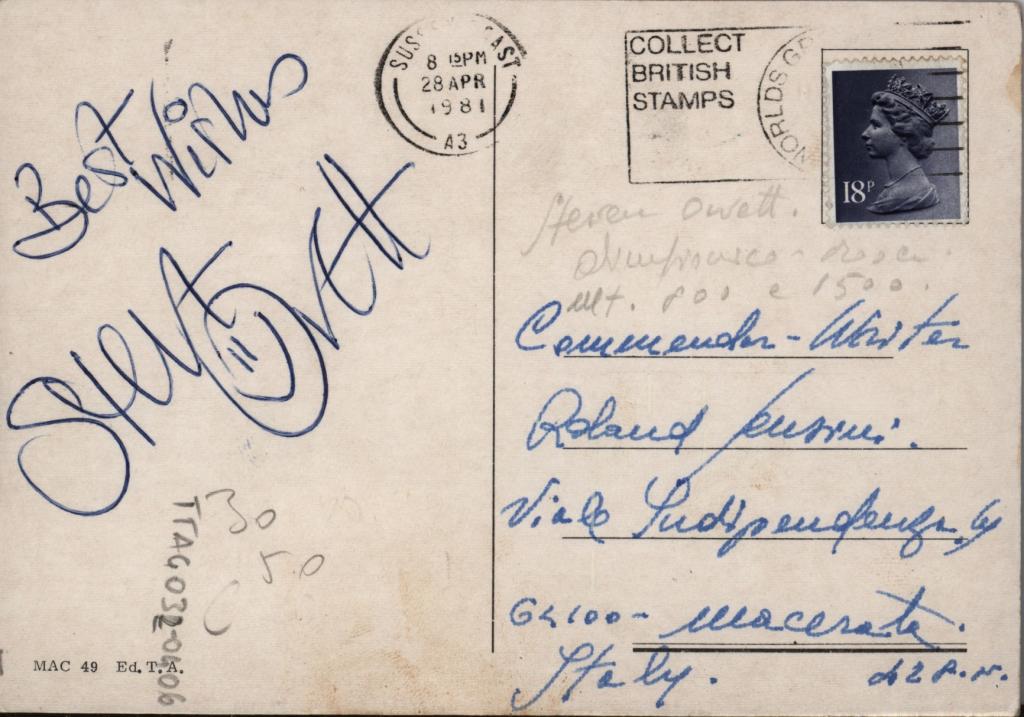 Best
Wishes
Steve Ovett
SUSSEX EAST
8 15PM
28 APR
1981
A3
COLLECT
BRITISH
STAMPS
WORLDS GR
18P
Steven Ovett.
mt. 800 e 1500.
Commendor - Writer
Roland
Viale Indipendenza
62100 - Macerata.
Italy.
TTAG032-0406
30
50
MAC 49 Ed. T. A.